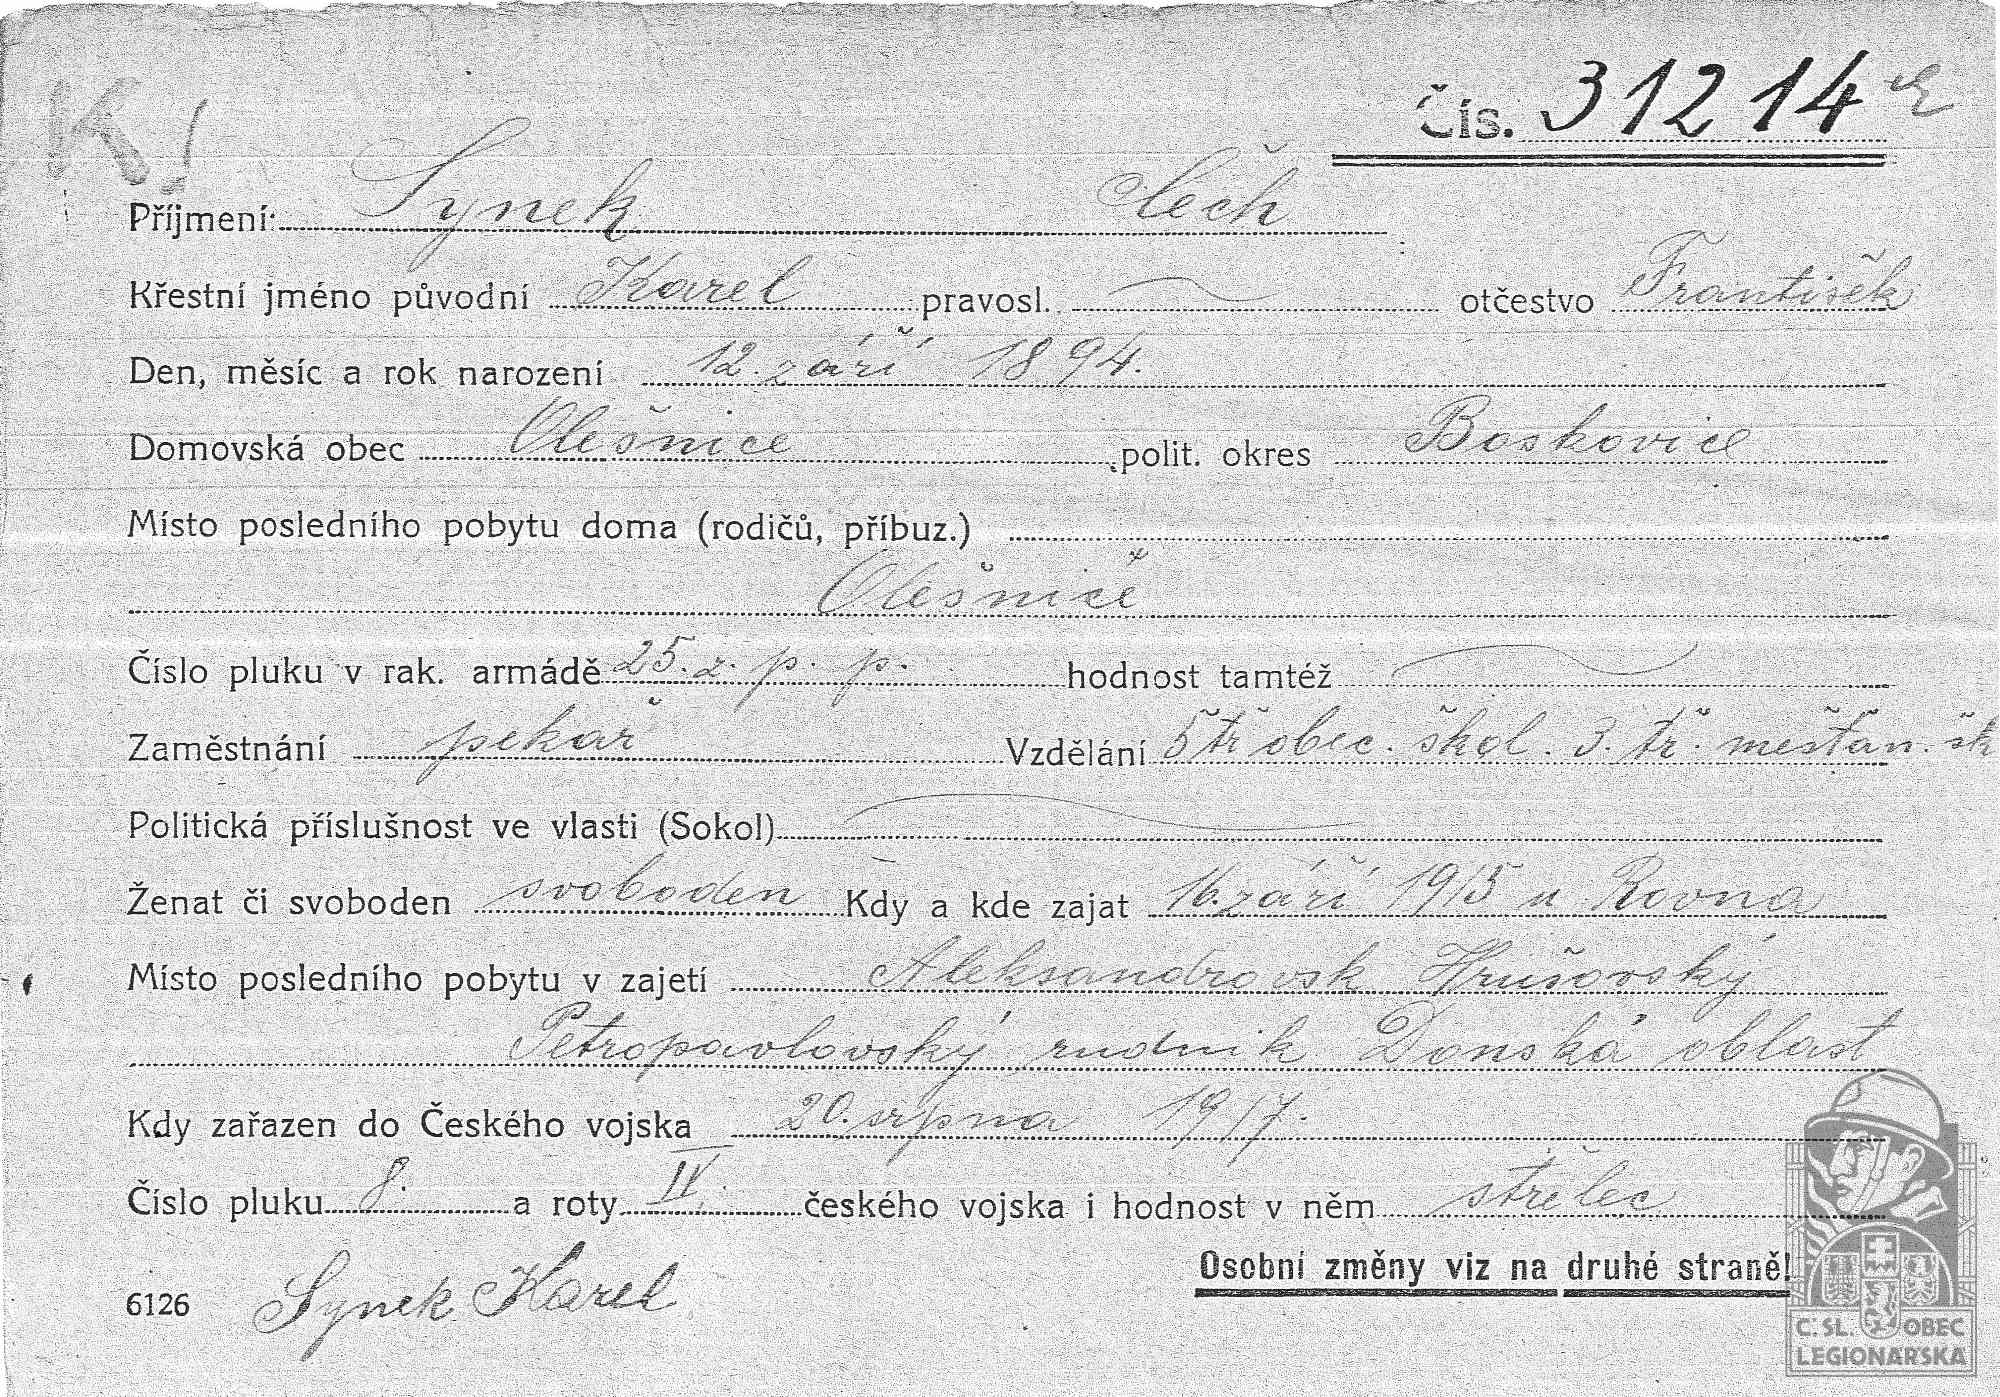 K!
Čís. 31214
Příjmení: Synek Čech
Křestní jméno původní Karel pravosl. otčestvo František
Den, měsíc a rok narození 12. září 1894.
Domovská obec Olešnice polit. okres Boskovice
Místo posledního pobytu doma (rodičů, příbuz.)
Olešnice
Číslo pluku v rak. armádě 25. z. p. p. hodnost tamtéž
Zaměstnání pekař Vzdělání 5 tř obec. škol. 3. tř. mešťan. šk
Politická příslušnost ve vlasti (Sokol)
Ženat či svoboden svoboden Kdy a kde zajat 16. září 1915 u Rovna
Místo posledního pobytu v zajetí Aleksandrovsk Hrušovský
Petropavlovský rudnik Donská oblast
Kdy zařazen do Českého vojska 20. srpna 1917.
Číslo pluku 8. a roty IV. českého vojska i hodnost v něm střelec
Osobní změny viz na druhé straně!
6126 Synek Karel
Č. SL. OBEC
LEGIONÁŘSKÁ